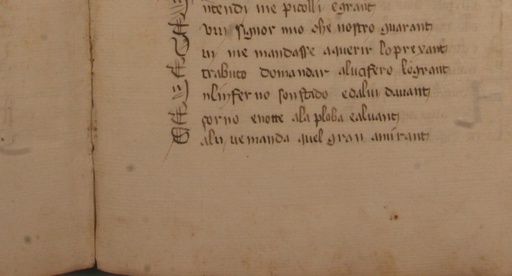 ntendi me picolli egrant
vui signor mio che nostro guarant
tu me mandasse aquerir lo prexant
trabuto domandar a lucifero le grant
nlinferno son stado e da lui davant
çorno enotte ala ploba ealvant
alu ve manda quel gran amirant